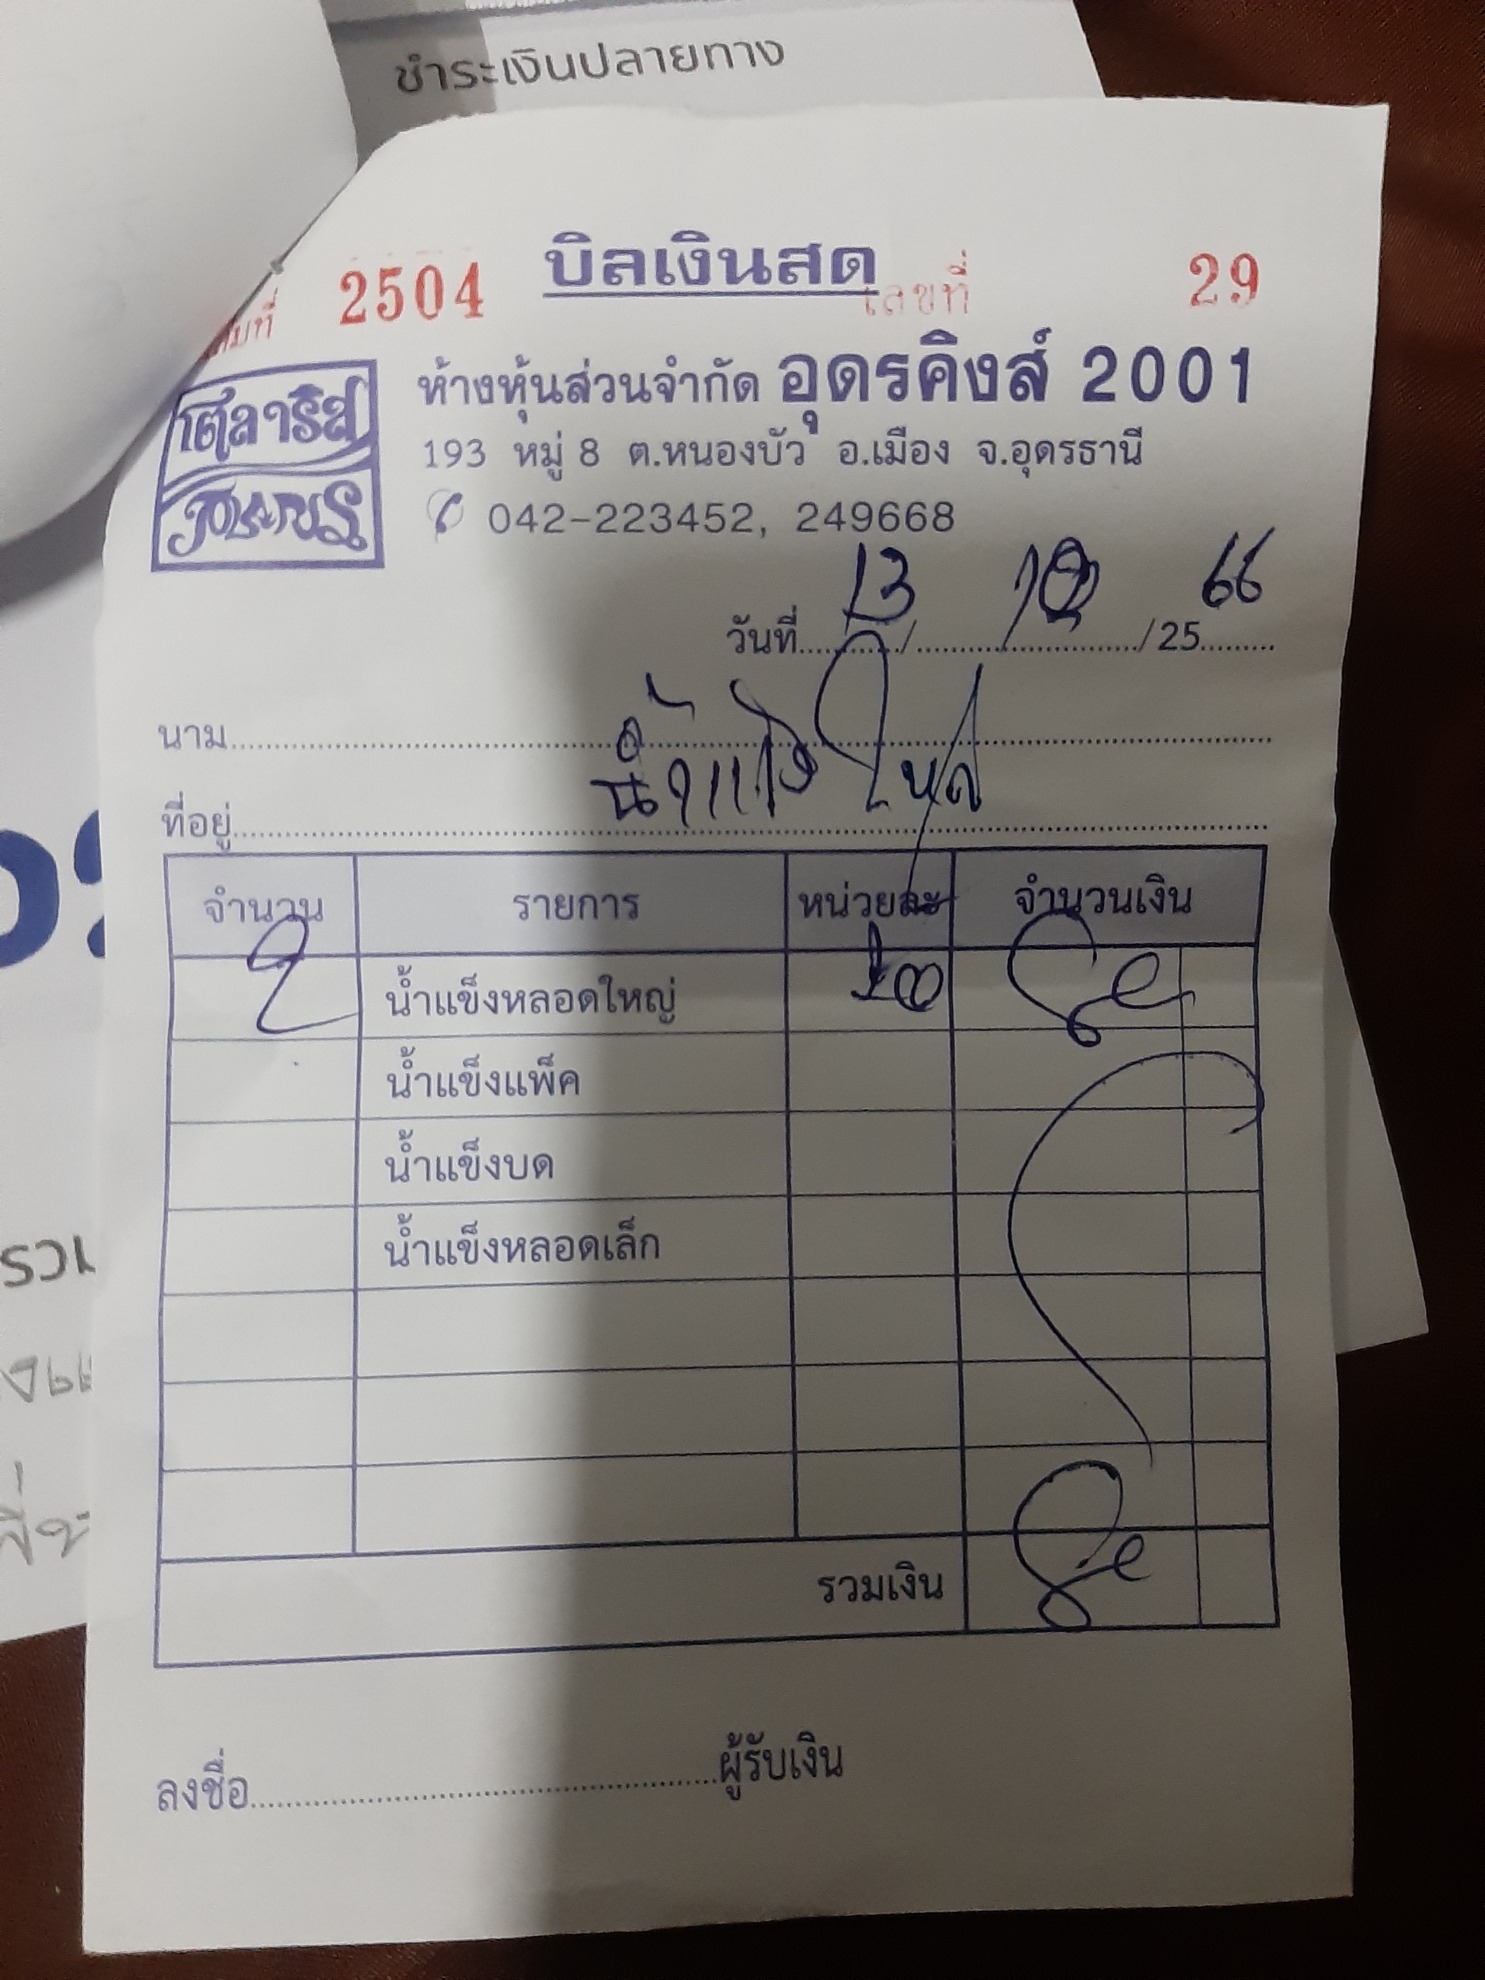 ชำระเงินปลายทาง
บิลเงินสด
2504 เลขที่ 29
ห้างหุ้นส่วนจำกัด อุดรคิงส์ 2001
193 หมู่ 8 ต.หนองบัว อ.เมือง จ.อุดรธานี
042-223452, 249668
วันที่ 13 / / 25 66
นาม
น้ำแข็ง
ที่อยู่
จำนวน รายการ หน่วยละ จำนวนเงิน
2 น้ำแข็งหลอดใหญ่
น้ำแข็งแพ็ค
น้ำแข็งบด
น้ำแข็งหลอดเล็ก
รวมเงิน
ลงชื่อ ผู้รับเงิน